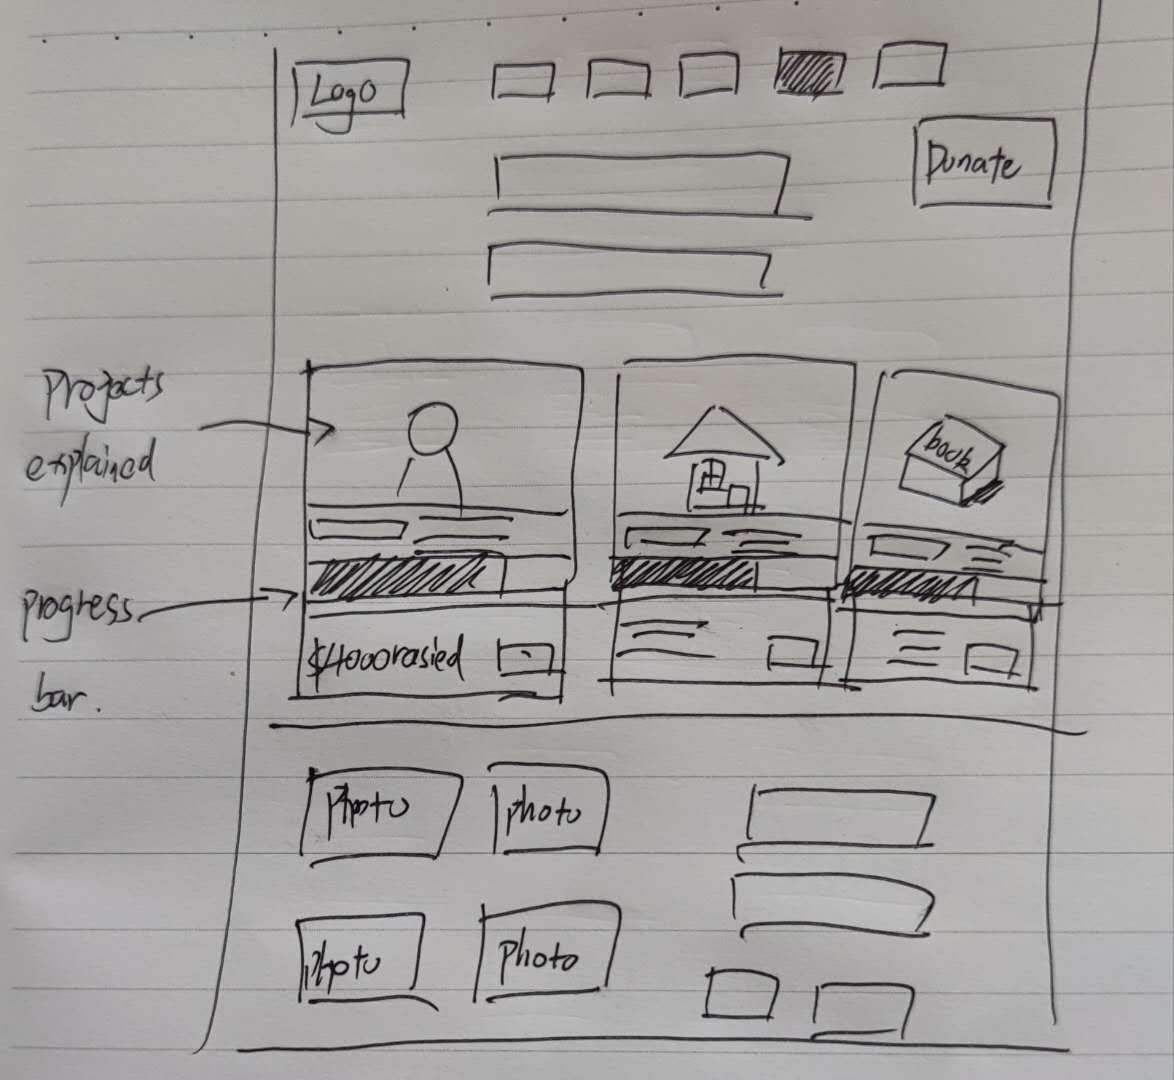 Logo
Donate
Projects
explained
book
progress
bar.
$4000rasied
photo
photo
photo
photo